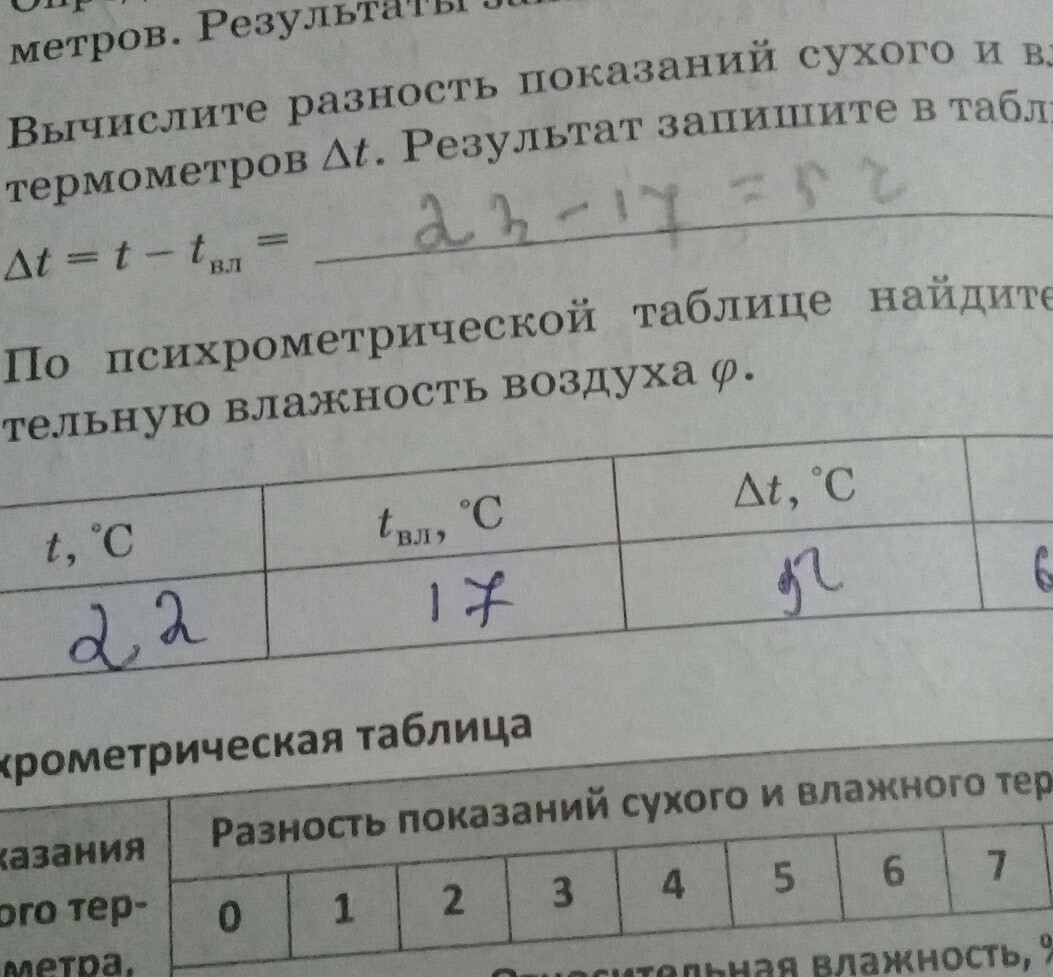 метров. Результаты
Вычислите разность показаний сухого и
термометров Δt. Результат запишите в
Δt = t − tвл = 22 − 17 = 5
По психрометрической таблице найдите
тельную влажность воздуха φ.
t, °C tвл, °C Δt, °C
22 17
хрометрическая таблица
Разность показаний сухого и влажного тер
казания
0 1 2 3 4 5 6 7
ого тер-
метра,
Относительная влажность, %